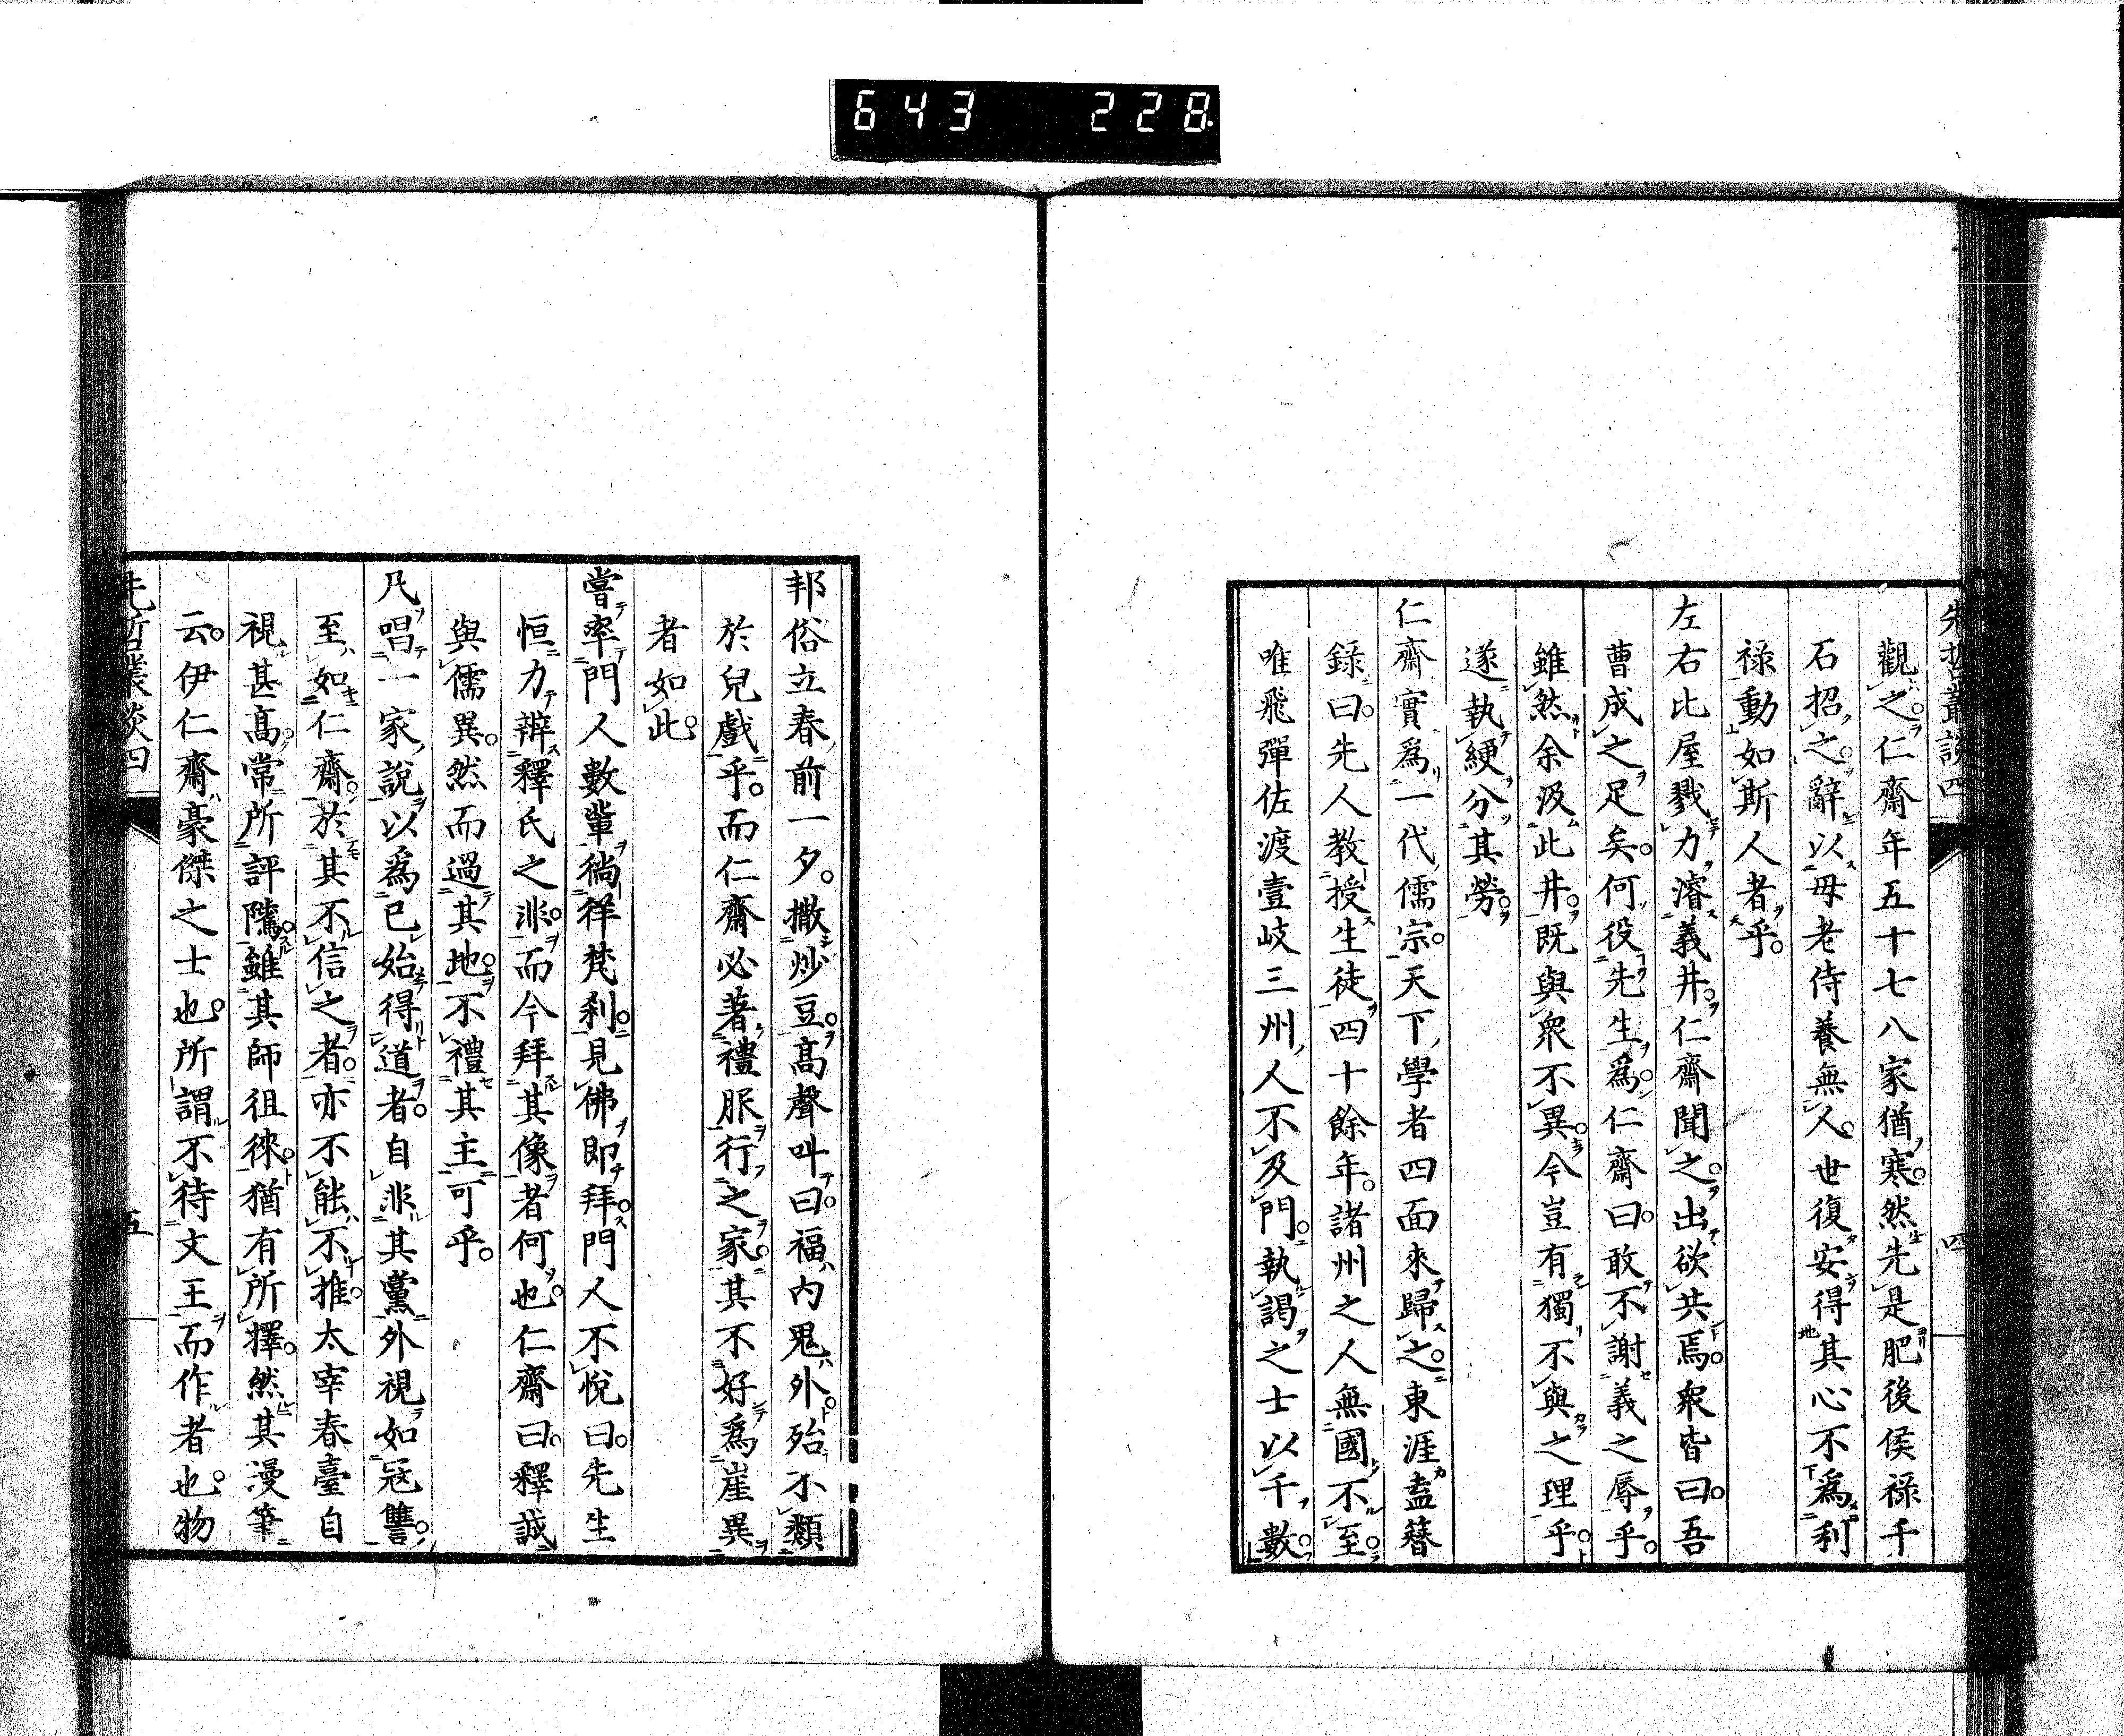 643 228
先哲叢談四 四
觀之。仁齋年五十七八家猶寒。然先是肥後侯祿千
石招之。辭以母老侍養無人。世復安得其心不爲利
祿動如斯人者乎。
左右比屋戮力濬義井。仁齋聞之。出欲共焉。衆皆曰。吾
曹成之足矣。何役先生爲。仁齋曰。敢不謝義之辱乎。
雖然余汲此井。既與衆不異。今豈有獨不與之理乎。
遂執綆分其勞。
仁齋實爲一代儒宗。天下學者四面來歸之。東涯盍簪
錄曰。先人教授生徒四十餘年。諸州之人無國不至。
唯飛彈佐渡壹岐三州人不及門。執謁之士以千數。
邦俗立春前一夕。撒炒豆。高聲叫曰。福內鬼外。殆不類
於兒戲乎。而仁齋必著禮服行之家。其不好爲崖異
者如此。
嘗率門人數輩徜徉梵刹。見佛即拜。門人不悅曰。先生
恒力辯釋氏之非。而今拜其像者何也。仁齋曰。釋誠
與儒異。然而過其地。不禮其主可乎。
凡唱一家說以爲已始得道者。自非其黨外視如冦讐。
至如仁齋。於其不信之者。亦不能不推。太宰春臺自
視甚高。常所評隲。雖其師徂徠。猶有所擇。然其漫筆
云。伊仁齋豪傑之士也。所謂不待文王而作者也。物
先哲叢談四 五